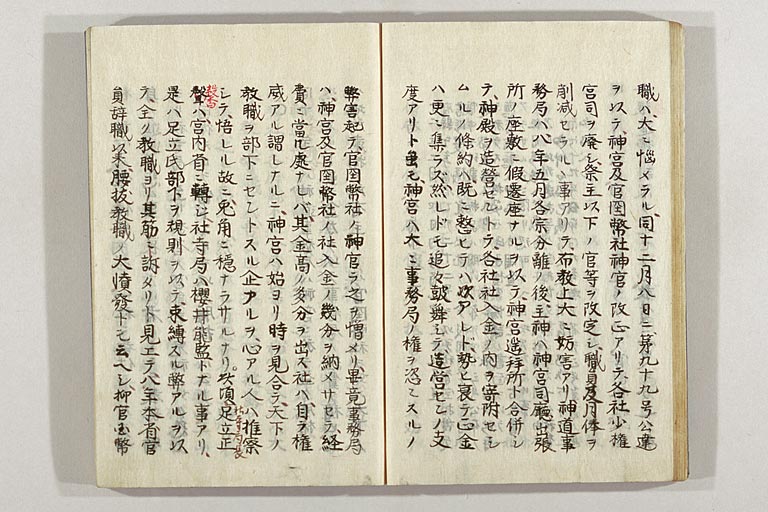 職ハ大ニ惱メラル同十二月八日ニ第九十九号公達
ヲ以テ神宮及官國幣社神官ノ改正アリテ各社少權
宮司ヲ廃シ祭主以下ノ官等ヲ改定シ職員及月俸ヲ
削減セラルヽ事アリテ布教上大ニ妨害アリ神道事
務局ハ八年五月各宗分離ノ後主神ハ神宮司廳出張
所ノ座敷ニ假遷座ナルヲ以テ神宮遥拜所ト合併シ
テ神殿ヲ造営セントテ各社社入金ノ内ヲ寄附セシ
ムルノ條約ハ既ニ整ヒテハ次アレド勢ヒ衰テ正金
ハ更ニ集ラズ然レドモ追々鼓舞シテ造営センノ支
度アリト虽モ神宮ハ大ニ事務局ノ權ヲ恣ニスルノ
弊害起テ官国幣社ノ神官ラ之ヲ憎メリ畢竟事務局
ハ神宮及官国幣社ノ社入金ノ幾分ヲ納メサセテ経
費ニ當ル處ナレバ其金高ノ多分ヲ出ス社ハ自ラ權
威アル謂レナルニ神宮ハ始ヨリ時ヲ見合テ天下ノ
教職ヲ部下ニセントスル企アルヲ心アル人ハ推察
シテ悟レル故ニ兎角ニ穏ナラサルナリ。此頃足立正
聲ハ宮内省ニ轉シ社寺局ハ櫻井能監トナル事アリ、
是ハ足立氏部下ヲ規則ヲ以テ束縛スル弊アルヲ以
テ全ノ教職ヨリ其筋ニ訴タリト見エテ八年本省官
員辞職以来腰抜教職ノ大憤發十モ云ヘシ抑官国幣